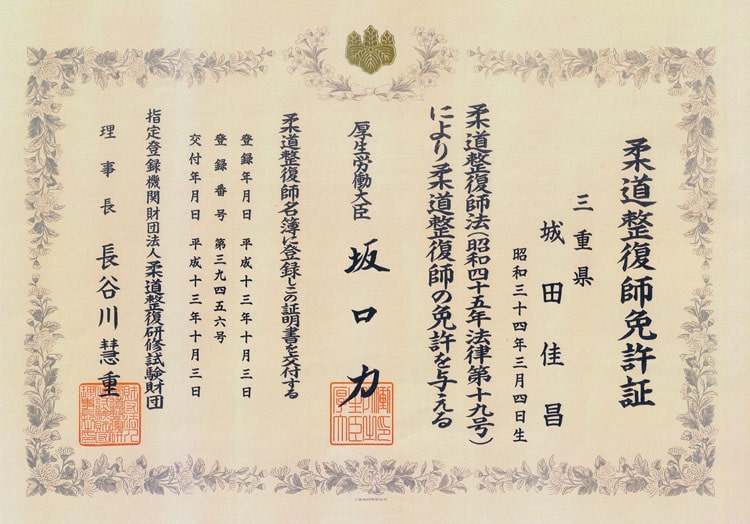 柔道整復師免許証
三重県
城田佳昌
昭和三十四年三月四日生
柔道整復師法(昭和四十五年法律第十九号)
により柔道整復師の免許を与える
厚生労働大臣 坂口力
柔道整復師名簿に登録しこの証明書を交付する
登録年月日 平成十三年十月三日
登録番号 第三九四五六号
交付年月日 平成十三年十月三日
指定登録機関財団法人柔道整復研修試験財団
理事長 長谷川慧重